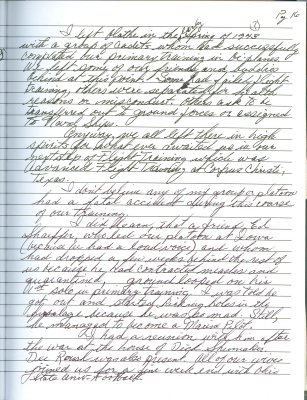 12, 16
I left Olathe in the Spring of 1943
with a group of Cadets whom had successfully
completed our primary training in bi planes.
We left some of our friends and buddies
behind at this point. Some had failed flight
training, others were separated for health
reasons or misconduct. Others ask to be
transferred out to ground forces or assigned
to Navy Ships.
Anyway, we all left there in high
spirits for what ever awaited us in our
next step of Flight Training which was
Advanced Flight Training at Corpus Christi,
Texas.
I don't believe any of my group or platoon
had a fatal accident during this course
of our training.
I did learn, that a friend, Ed
who led our platoon at Iowa
(because he had a loud voice) and whom
had dropped a few weeks behind the rest of
us because he had contracted measles and
quarantined, ground looped on his
solo in primary training. I was told he
got out and started kicking holes in the
fuselage because he was so mad. Still,
he managed to become a Marine Pilot.
I had a reunion with him after
the war at the house of Dick
Dee was also present. All of our wives
joined us for a fine week end with Ohio
State Univ. Football.